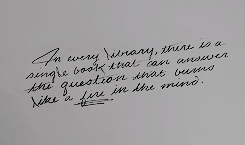 In every library, there is a
single book that can answer
the question that burns
like a fire in the mind.